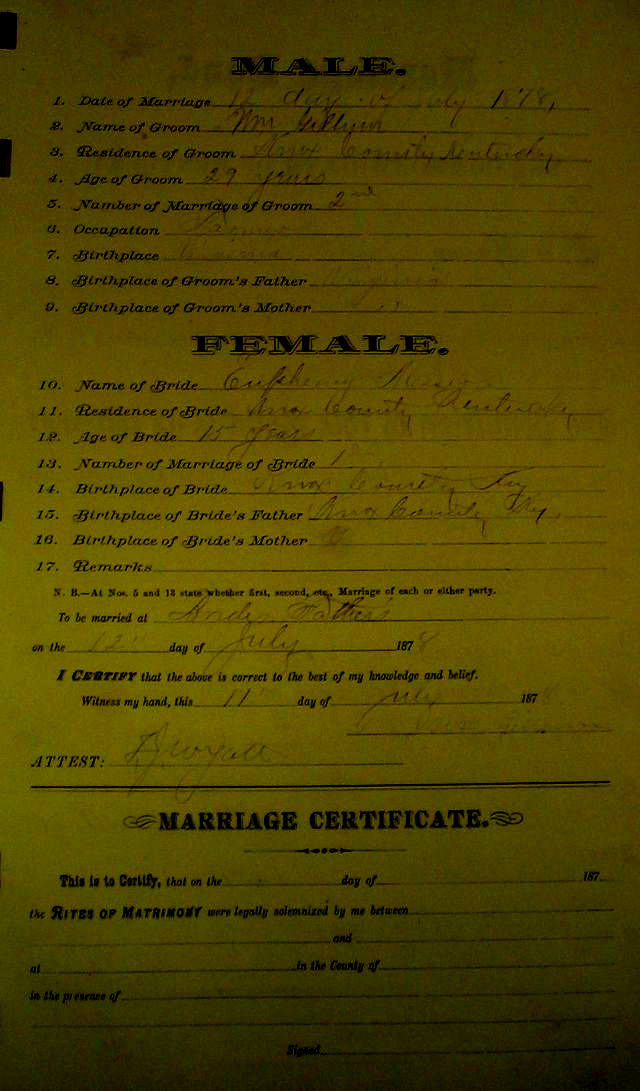 MALE.
1. Date of Marriage 12 day of July 1878,
2. Name of Groom Wm
3. Residence of Groom Knox County Kentucky
4. Age of Groom 29 years
5. Number of Marriage of Groom 2nd
6. Occupation
7. Birthplace
8. Birthplace of Groom's Father
9. Birthplace of Groom's Mother
FEMALE.
10. Name of Bride
11. Residence of Bride Knox County Kentucky
12. Age of Bride 15 years
13. Number of Marriage of Bride 1
14. Birthplace of Bride Knox County Ky
15. Birthplace of Bride's Father Knox County Ky.
16. Birthplace of Bride's Mother
17. Remarks
N. B.—At Nos. 5 and 13 state whether first, second, etc., Marriage of each or either party.
To be married at
on the 12 day of July 1878
I CERTIFY that the above is correct to the best of my knowledge and belief.
Witness my hand, this 11 day of July 187
ATTEST:
MARRIAGE CERTIFICATE.
This is to Certify, that on the day of 187
the RITES OF MATRIMONY were legally solemnized by me between
and
at in the County of
in the presence of
Signed